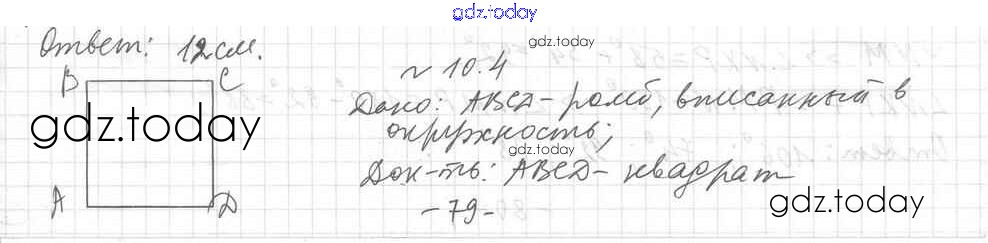 gdz.today
gdz.today
Ответ: 12 см.
№ 10.4
B C
Дано: ABCD - ромб, вписанный в
окружность;
gdz.today
gdz.today
Док-ть: ABCD - квадрат
A D
- 79 -
gdz.today